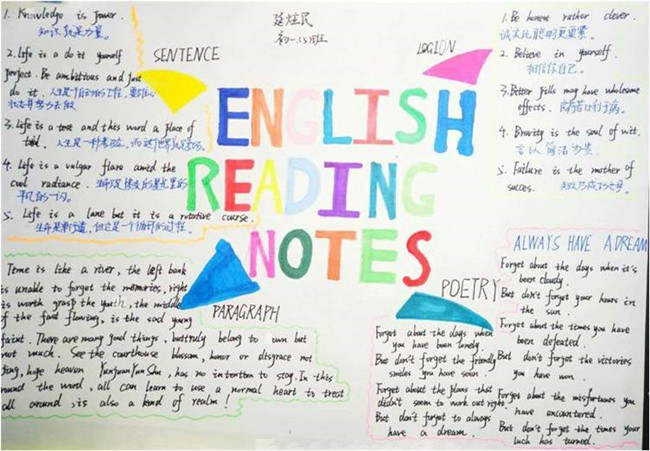 1. Knowledge is power.
知识就是力量。
2. Life is a do it yourself
project. Be ambitious and just
do it.
3. Life is a test and this word a place of
人生是一种考验,而这
4. Life is a vulgar flare amid the
cool radiance.
平凡的一闪。
5. Life is a lane but it is a rotative course.
SENTENCE
初一.15班
LOGION
ENGLISH
READING
NOTES
1. Be honest rather clever.
诚实比聪明更重要。
2. Believe in yourself.
相信你自己。
3. Better pills may have wholesome
effects. 良药苦口利于病。
4. Brevity is the soul of wit.
言以简洁为贵。
5. Failure is the mother of
succes. 失败乃成功之母。
PARAGRAPH
Time is like a river, the left bank
is unable to forget the memories, right
is worth grasp the youth, the middle
of the fast flowing, is the sad young
faint. There are many good things, buttruly belong to own but
not much. See the courthouse blossom, honor or disgrace not
ting, hope heaven YunJuanYunShu, has no intention to stay. In this
round the word, all can learn to use a normal heart to treat
all around, is also a kind of realm!
POETRY
Forget about the days when
you have been lonely.
But don't forget the friendly
smiles you have seen.
Forget about the plans that
didn't seem to work out right.
But don't forget to always
have a dream.
ALWAYS HAVE A DREAM
Forget about the days when it's
been cloudy.
But don't forget your hours in
the sun.
Forget about the times you have
been defeated.
But don't forget the victories
you have won.
Forget about the misfortunes you
have encountered.
But don't forget the times your
luch has turned.